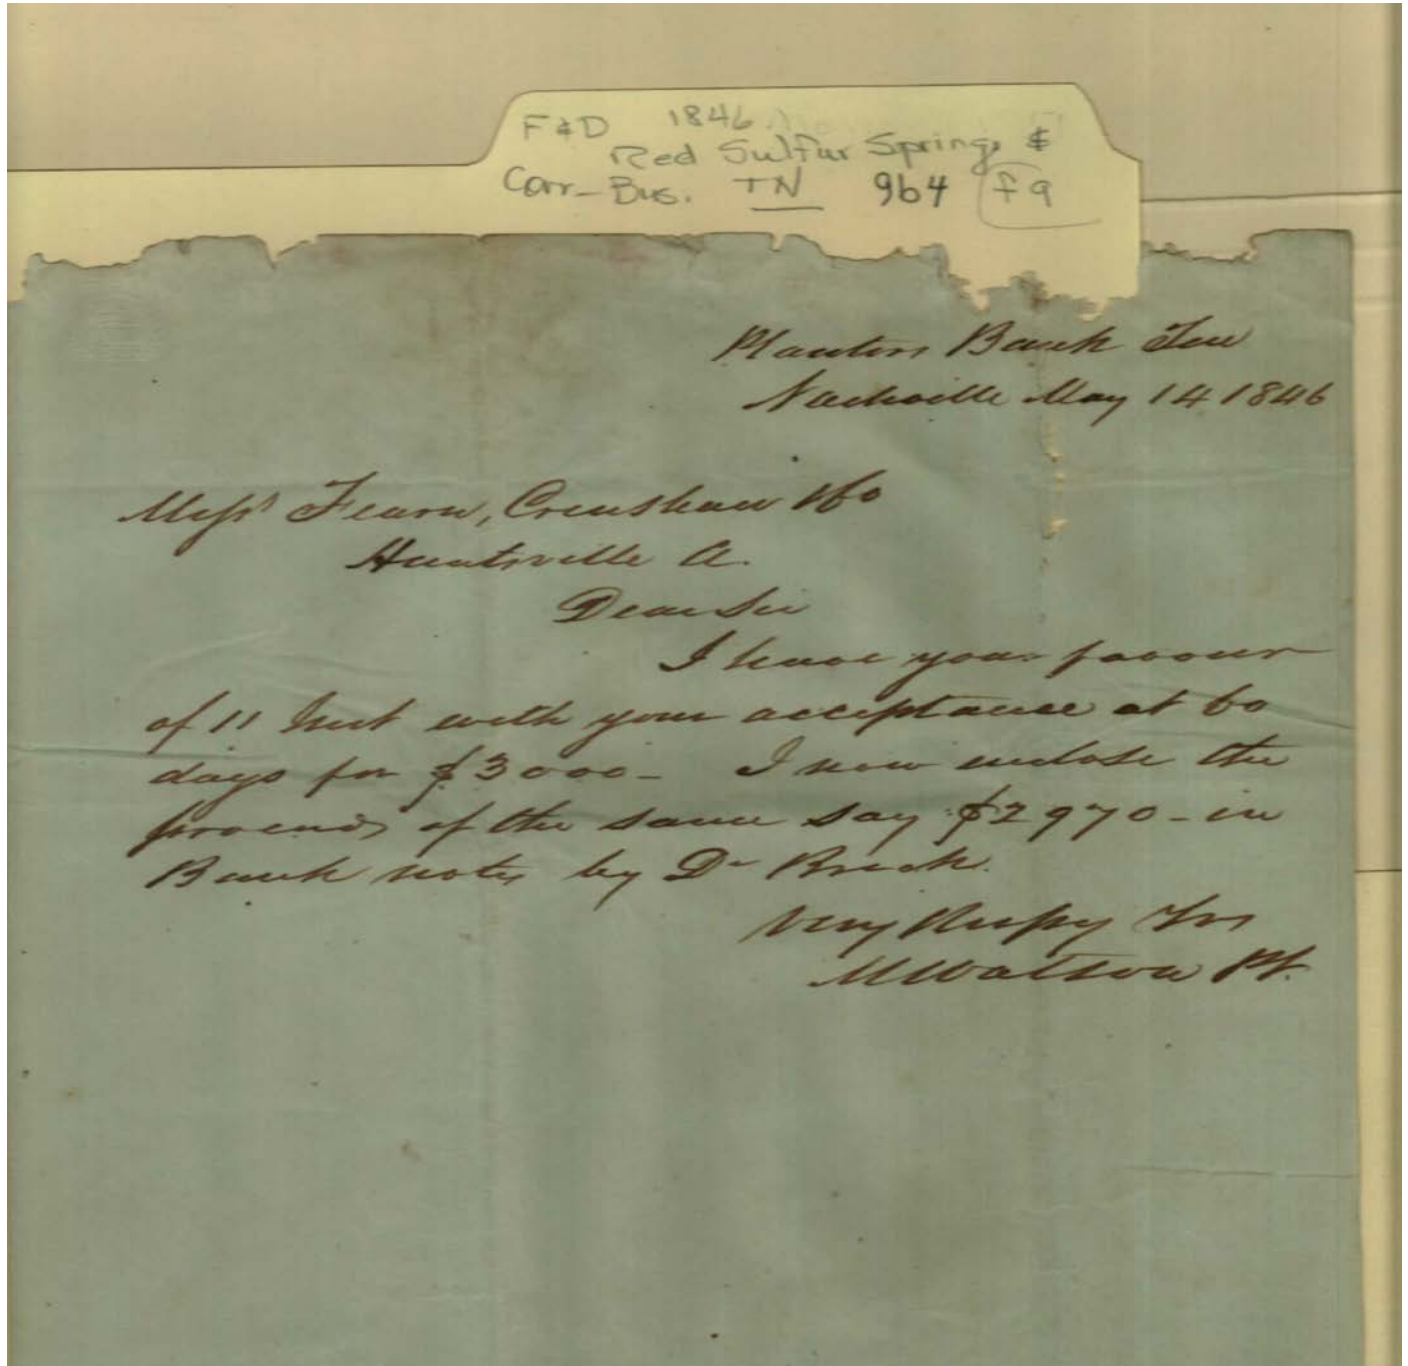 F&D 1846
Red Sulfur Springs &
Corr-Bus. TN 964 f9
Planters Bank Ten
Nashville May 14 1846
Messrs Fearn, Crenshaw & Co
Huntsville A.
Dear Sir
I have your favour
of 11 Inst with your acceptance at 60
days for $3000- I now enclose the
proceeds of the same say $2970- in
Bank notes by Dr
Very Respy Yrs
M Watson Pt.